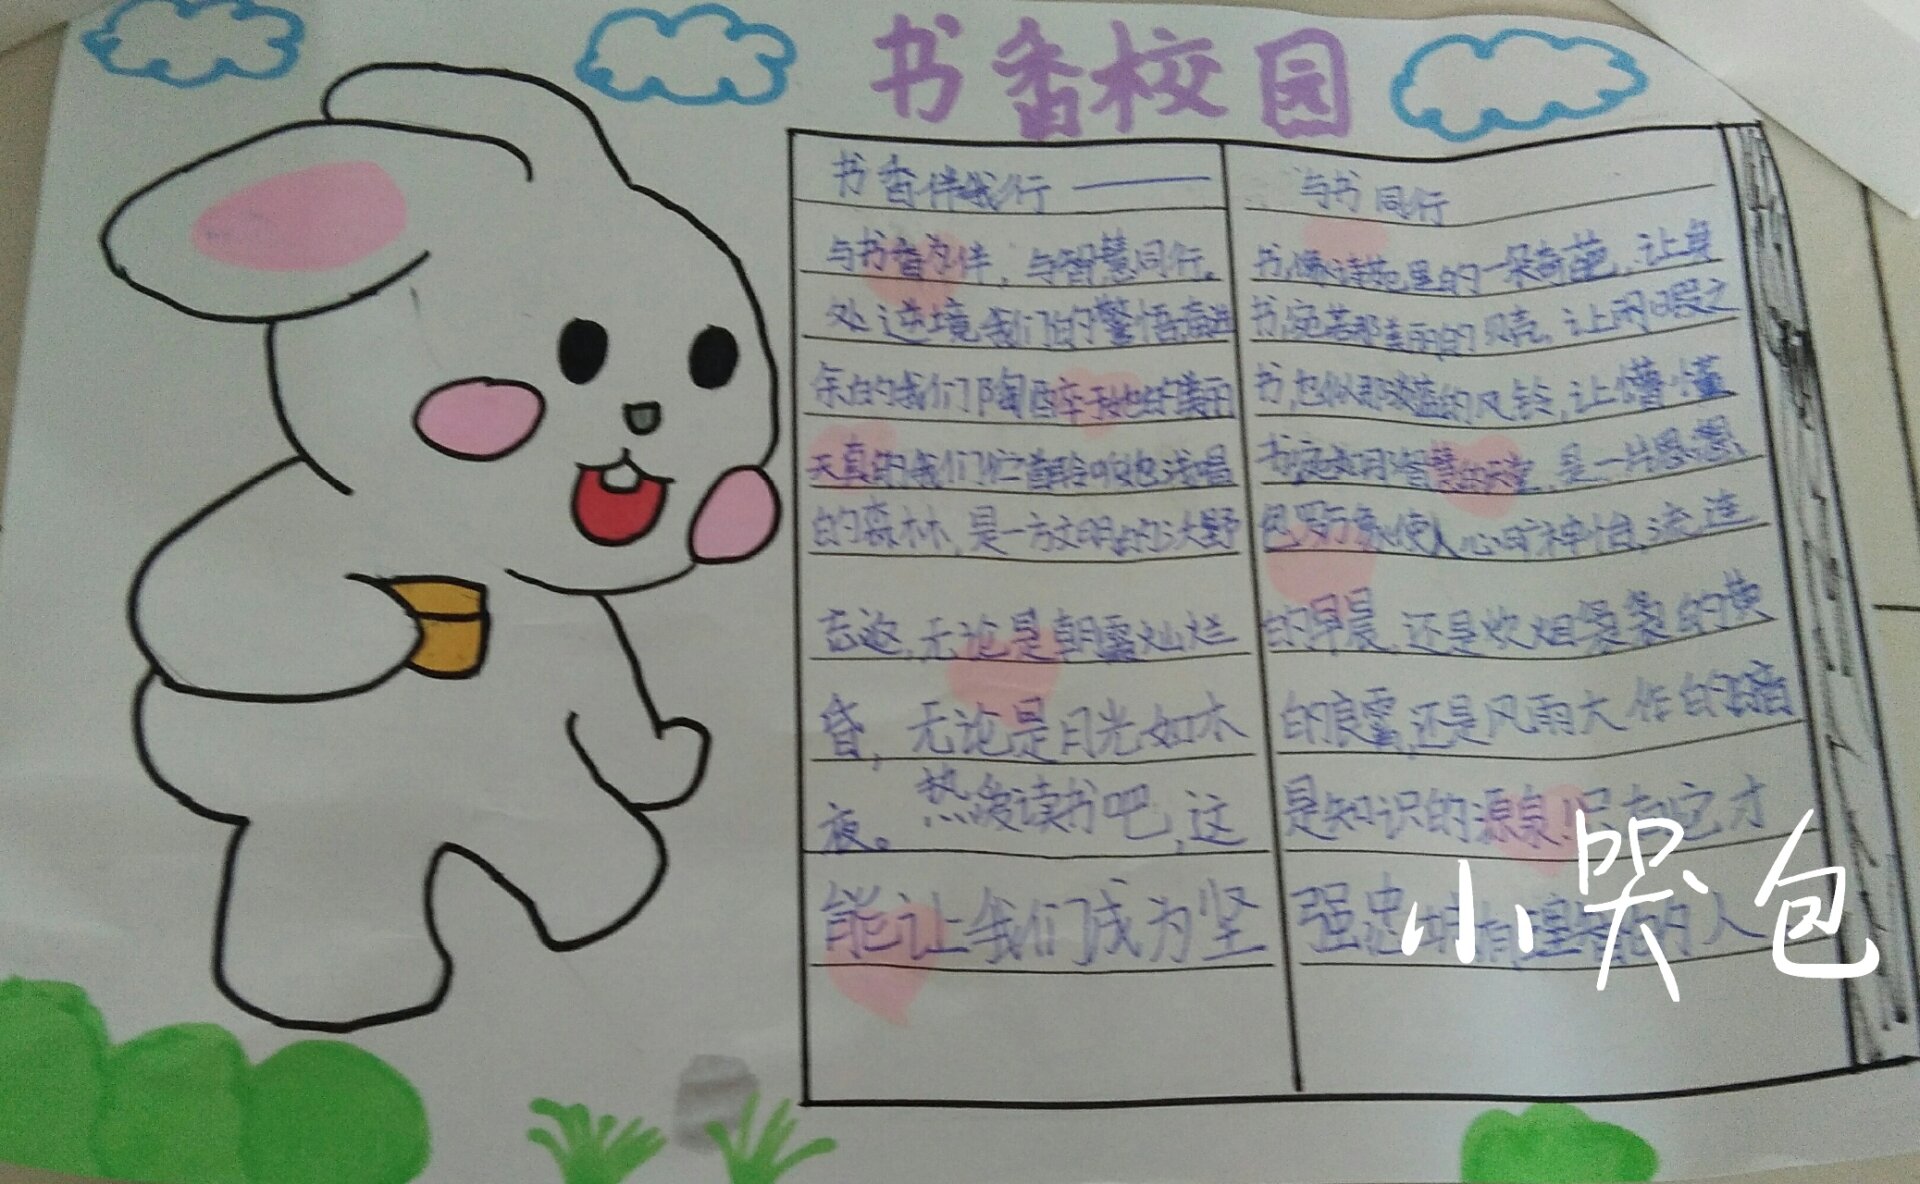 书香校园
书香伴我行——与书同行
与书香为伴，与智慧同行。书，像诗苑里的一朵奇葩，让身
处逆境我们的警悟奋进书，宛若那美丽的贝壳，让闲暇之
余的我们陶醉于她的美丽书，也似那的风铃，让懵懂
天真的我们首聆听她浅唱书宛如那智慧的天堂，是一片思想
的森林，是一方文明的沃野包罗万象使人心旷神怡，流连
忘返，无论是朝露灿烂的早晨，还是炊烟袅袅的黄
昏，无论是月光如水的良霄，还是风雨大作的暗
夜。热爱读书吧，这是知识的源泉！只有它才
能让我们成为坚强忠有的人
小哭包